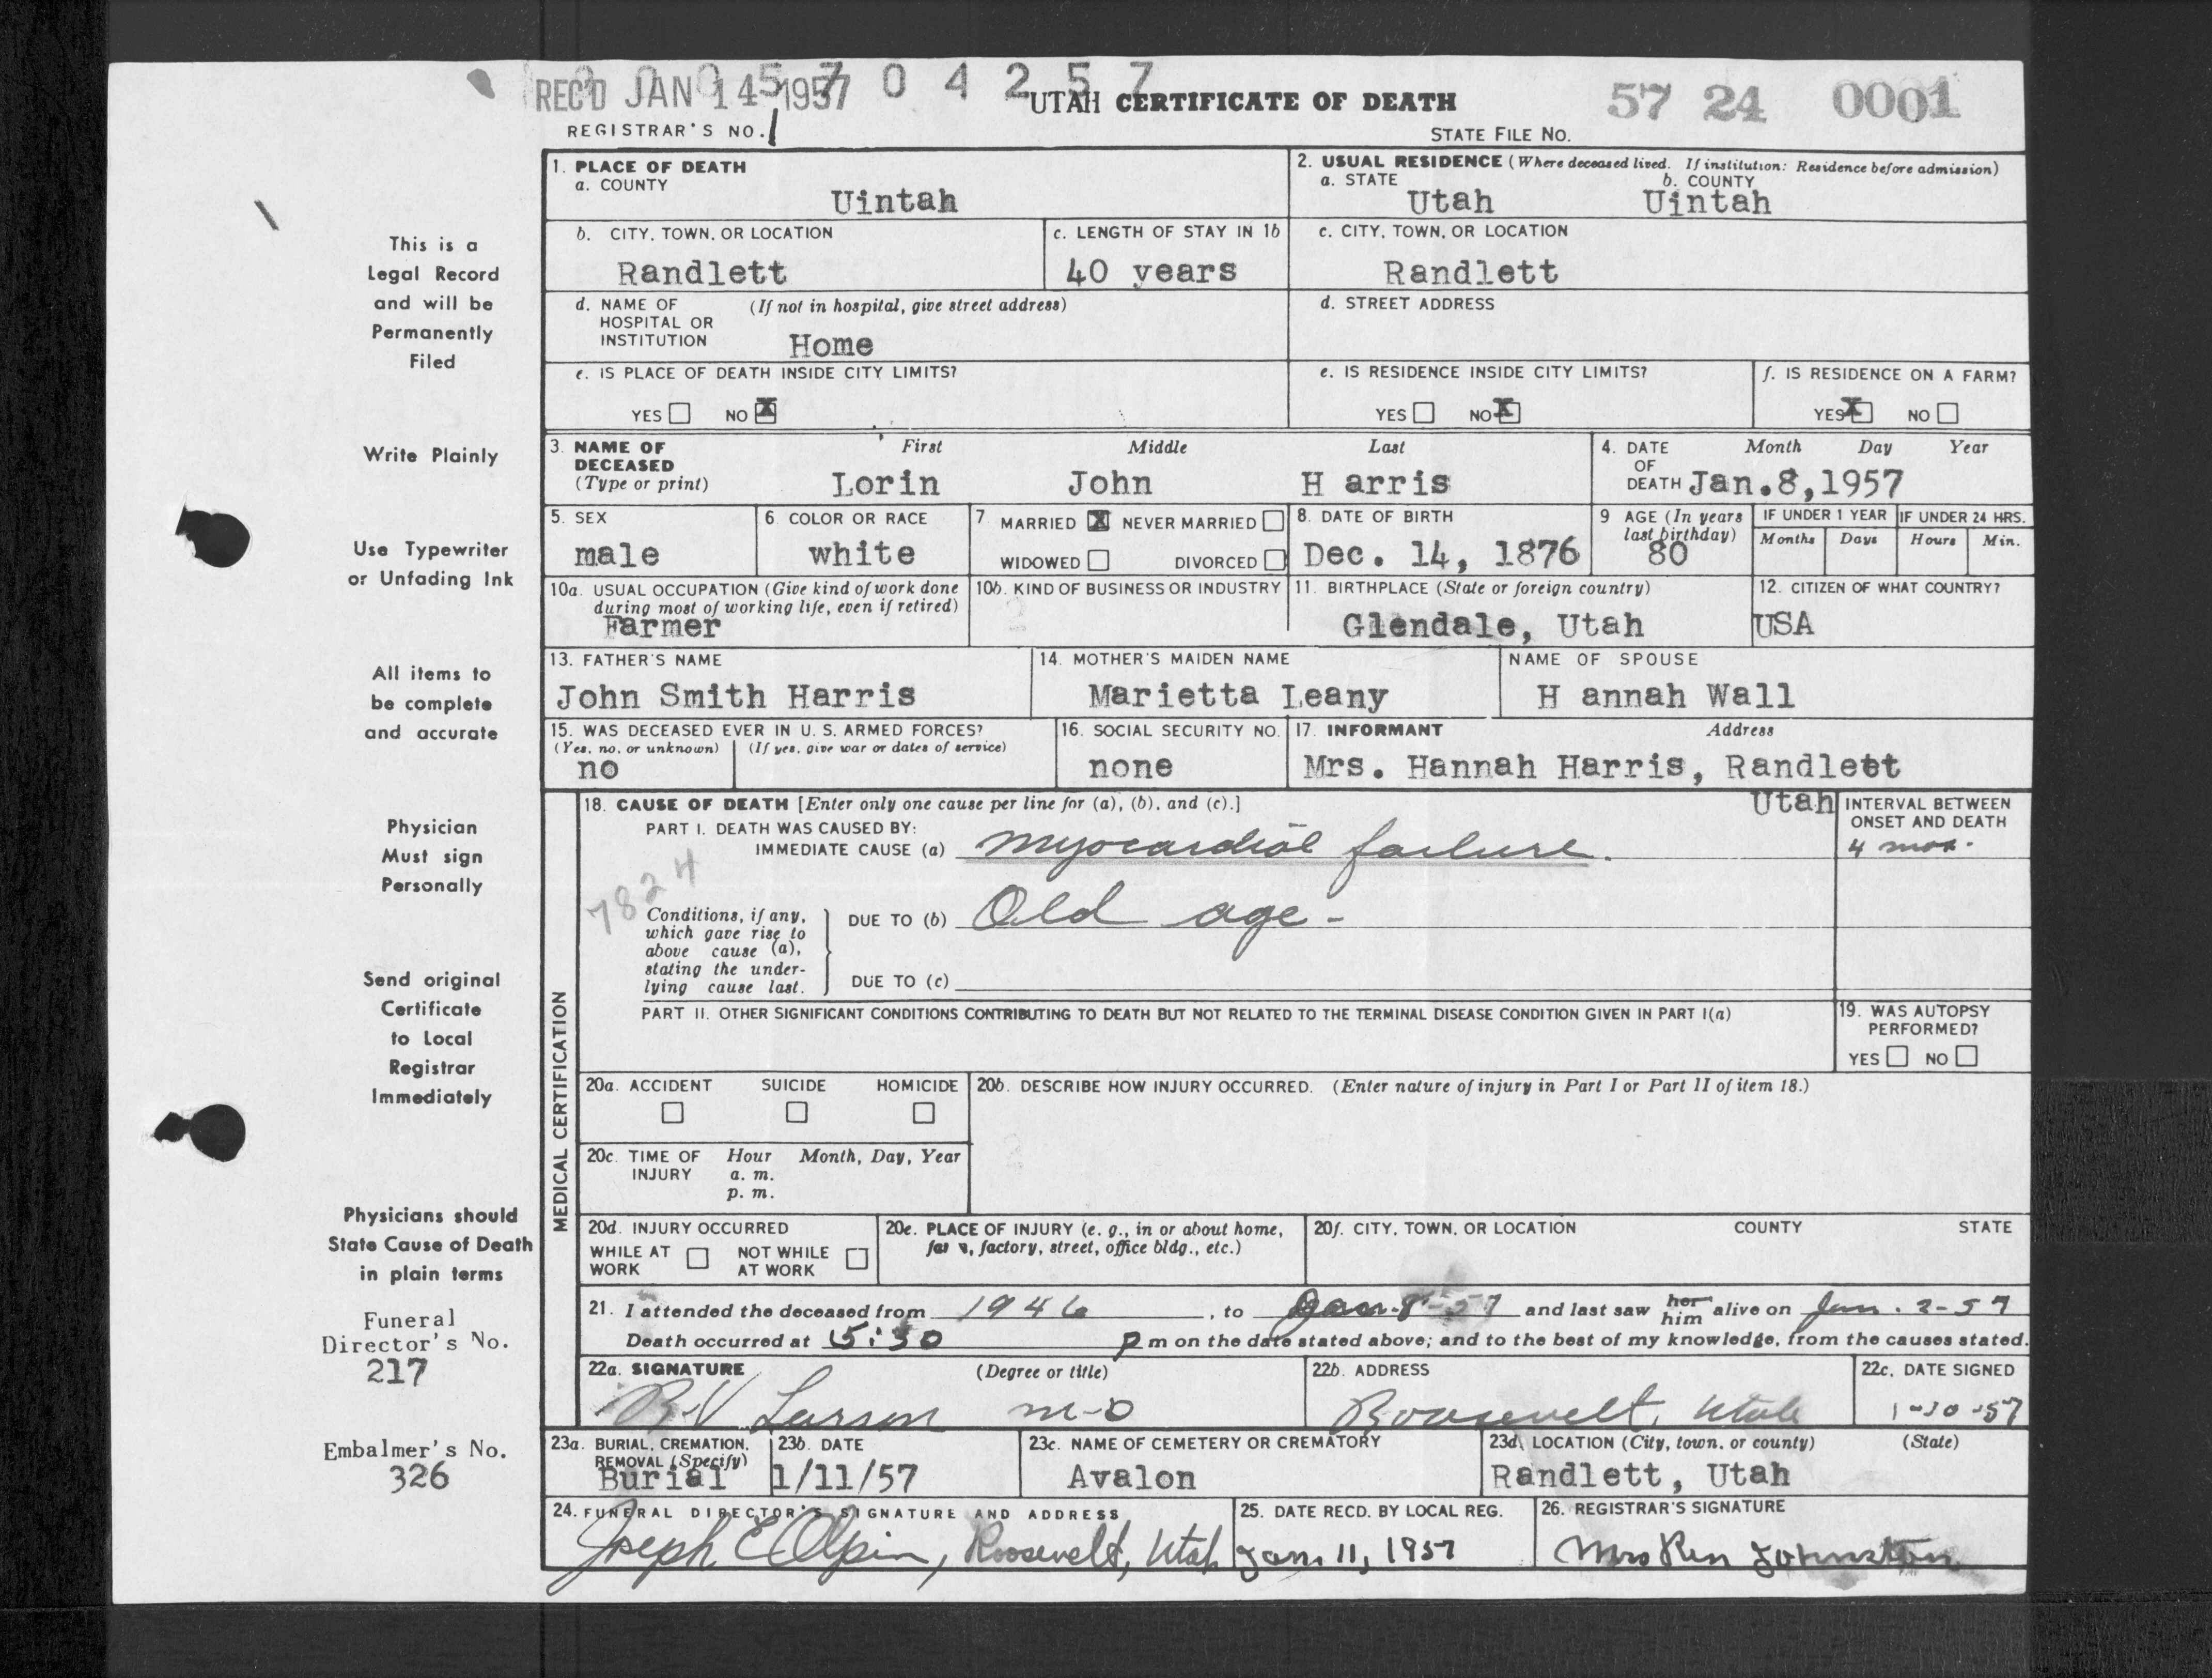 REC'D JAN 14 1957 0 0 0 5 7 0 4 2 5 7 57 24 0001
UTAH CERTIFICATE OF DEATH
REGISTRAR'S NO. 1 STATE FILE NO.
This is a
Legal Record
and will be
Permanently
Filed
Write Plainly
Use Typewriter
or Unfading Ink
All items to
be complete
and accurate
Physician
Must sign
Personally
Send original
Certificate
to Local
Registrar
Immediately
Physicians should
State Cause of Death
in plain terms
Funeral
Director's No.
217
Embalmer's No.
326
1. PLACE OF DEATH
a. COUNTY
Uintah
2. USUAL RESIDENCE (Where deceased lived. If institution: Residence before admission)
a. STATE b. COUNTY
Utah Uintah
b. CITY, TOWN, OR LOCATION
Randlett
c. LENGTH OF STAY IN 1b
40 years
c. CITY, TOWN, OR LOCATION
Randlett
d. NAME OF (If not in hospital, give street address)
HOSPITAL OR
INSTITUTION
Home
d. STREET ADDRESS
e. IS PLACE OF DEATH INSIDE CITY LIMITS?
YES NO X
e. IS RESIDENCE INSIDE CITY LIMITS?
YES NO X
f. IS RESIDENCE ON A FARM?
YES X NO
3. NAME OF First Middle Last
DECEASED
(Type or print) Lorin John H arris
4. DATE Month Day Year
OF
DEATH Jan.8,1957
5. SEX
male
6. COLOR OR RACE
white
7. MARRIED X NEVER MARRIED
WIDOWED DIVORCED
8. DATE OF BIRTH
Dec. 14, 1876
9 AGE (In years
last birthday)
80
IF UNDER 1 YEAR IF UNDER 24 HRS.
Months Days Hours Min.
10a. USUAL OCCUPATION (Give kind of work done
during most of working life, even if retired)
Farmer
10b. KIND OF BUSINESS OR INDUSTRY
11. BIRTHPLACE (State or foreign country)
Glendale, Utah
12. CITIZEN OF WHAT COUNTRY?
USA
13. FATHER'S NAME
John Smith Harris
14. MOTHER'S MAIDEN NAME
Marietta Leany
NAME OF SPOUSE
H annah Wall
15. WAS DECEASED EVER IN U. S. ARMED FORCES?
(Yes, no, or unknown) (If yes, give war or dates of service)
no
16. SOCIAL SECURITY NO.
none
17. INFORMANT Address
Mrs. Hannah Harris, Randlett
Utah
MEDICAL CERTIFICATION
18. CAUSE OF DEATH [Enter only one cause per line for (a), (b), and (c).]
INTERVAL BETWEEN
ONSET AND DEATH
PART I. DEATH WAS CAUSED BY:
IMMEDIATE CAUSE (a) myocardial failure. 4 mos.
7824
Conditions, if any,
which gave rise to
above cause (a),
stating the under-
lying cause last.
DUE TO (b) Old age -
DUE TO (c)
PART II. OTHER SIGNIFICANT CONDITIONS CONTRIBUTING TO DEATH BUT NOT RELATED TO THE TERMINAL DISEASE CONDITION GIVEN IN PART I(a)
19. WAS AUTOPSY
PERFORMED?
YES NO
20a. ACCIDENT SUICIDE HOMICIDE
20b. DESCRIBE HOW INJURY OCCURRED. (Enter nature of injury in Part I or Part II of item 18.)
20c. TIME OF Hour Month, Day, Year
INJURY a. m.
p. m.
20d. INJURY OCCURRED
WHILE AT NOT WHILE
WORK AT WORK
20e. PLACE OF INJURY (e. g., in or about home,
farm, factory, street, office bldg., etc.)
20f. CITY, TOWN, OR LOCATION COUNTY STATE
21. I attended the deceased from 1946, to Jan-8-57 and last saw her him alive on Jan. 2-57
Death occurred at 5:30 p m on the date stated above; and to the best of my knowledge, from the causes stated.
22a. SIGNATURE (Degree or title)
RV Larson M-D
22b. ADDRESS
Roosevelt, Utah
22c. DATE SIGNED
1-10-57
23a. BURIAL, CREMATION,
REMOVAL (Specify)
Burial
23b. DATE
1/11/57
23c. NAME OF CEMETERY OR CREMATORY
Avalon
23d. LOCATION (City, town, or county) (State)
Randlett, Utah
24. FUNERAL DIRECTOR'S SIGNATURE AND ADDRESS
Joseph E Olpin, Roosevelt, Utah
25. DATE RECD. BY LOCAL REG.
Jan 11, 1957
26. REGISTRAR'S SIGNATURE
Mrs Ren Johnston